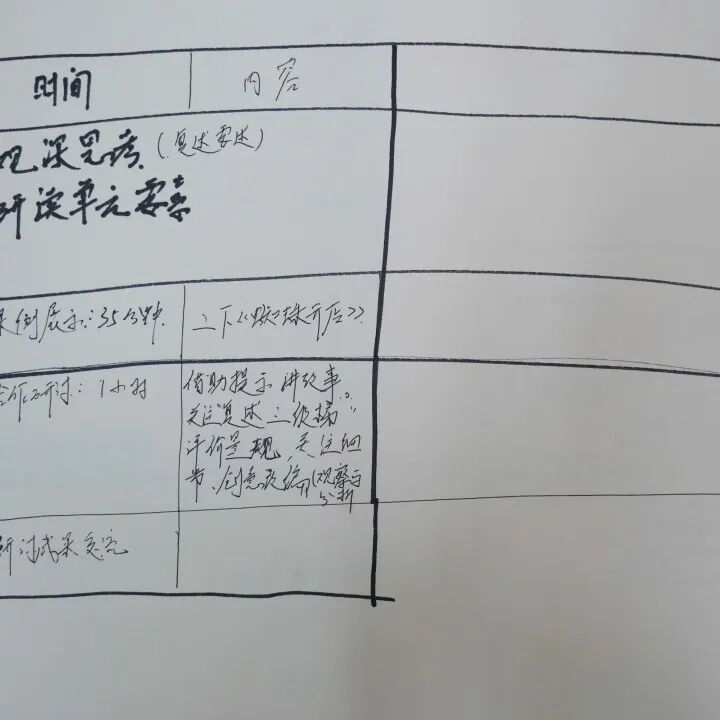 时间 内容
深思考(复述要述)
研读单元要素
课例展示:35分钟 二下《蜘蛛开店》
合作研讨:1小时 借助提示 讲故事
关注"复述三级梯"
评价量规、关注细
节、创意改编(观察与
分析
研讨成果交流